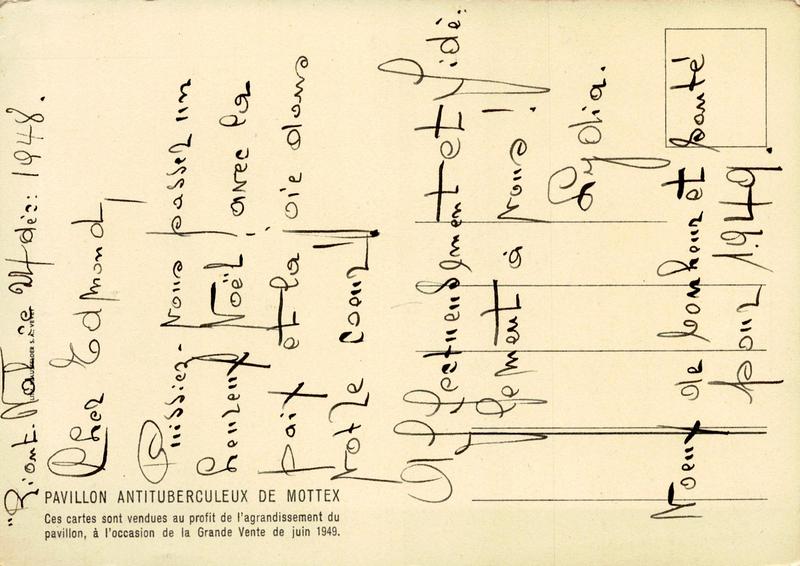 "Riant-Val", ce 24 déc: 1948.
Cher Edmond,
Puissiez-vous passer un
heureux Noël, avec la
paix et la joie dans
votre coeur!
Affectueusement et fidè-
lement à vous!
Lydia.
Voeux de bonheur et santé
pour 1949.
PAVILLON ANTITUBERCULEUX DE MOTTEX
Ces cartes sont vendues au profit de l'agrandissement du
pavillon, à l'occasion de la Grande Vente de juin 1949.